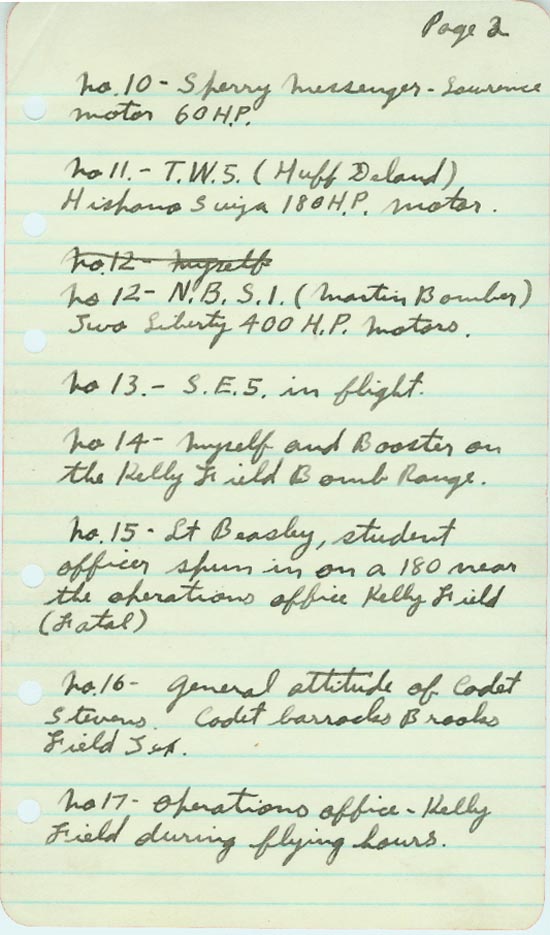 Page 2
No.10- Sperry Messenger-Lawrence
motor 60 H.P.
No 11.- T.W.5. (Huff Deland)
Hishano Suiza 180 H.P. motor.
No.12- Myself
No 12- N.B.S.1. (Martin Bomber)
Two Liberty 400 H.P. Motors.
No 13.- S.E.5. in flight.
No 14- Myself and Booster on
the Kelly Field Bomb Range.
No.15- Lt Beasley, student
officer spun in on a 180 near
the operations office Kelly Field
(Fatal)
No.16- General attitude of Cadet
Stevens. Cadet barracks Brooks
Field Tex.
No 17- Operations office-Kelly
Field during flying hours.